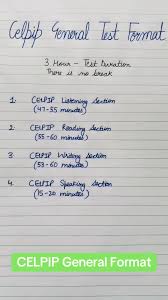 Celpip General Test Format
3 Hour - Test Duration
There is no break
1. CELPIP Listening Section
(47-55 minutes)
2. CELPIP Reading Section
(55-60 minutes)
3. CELPIP Writing Section
(53-60 minutes)
4. CELPIP Speaking Section
(15-20 minutes)
CELPIP General Format